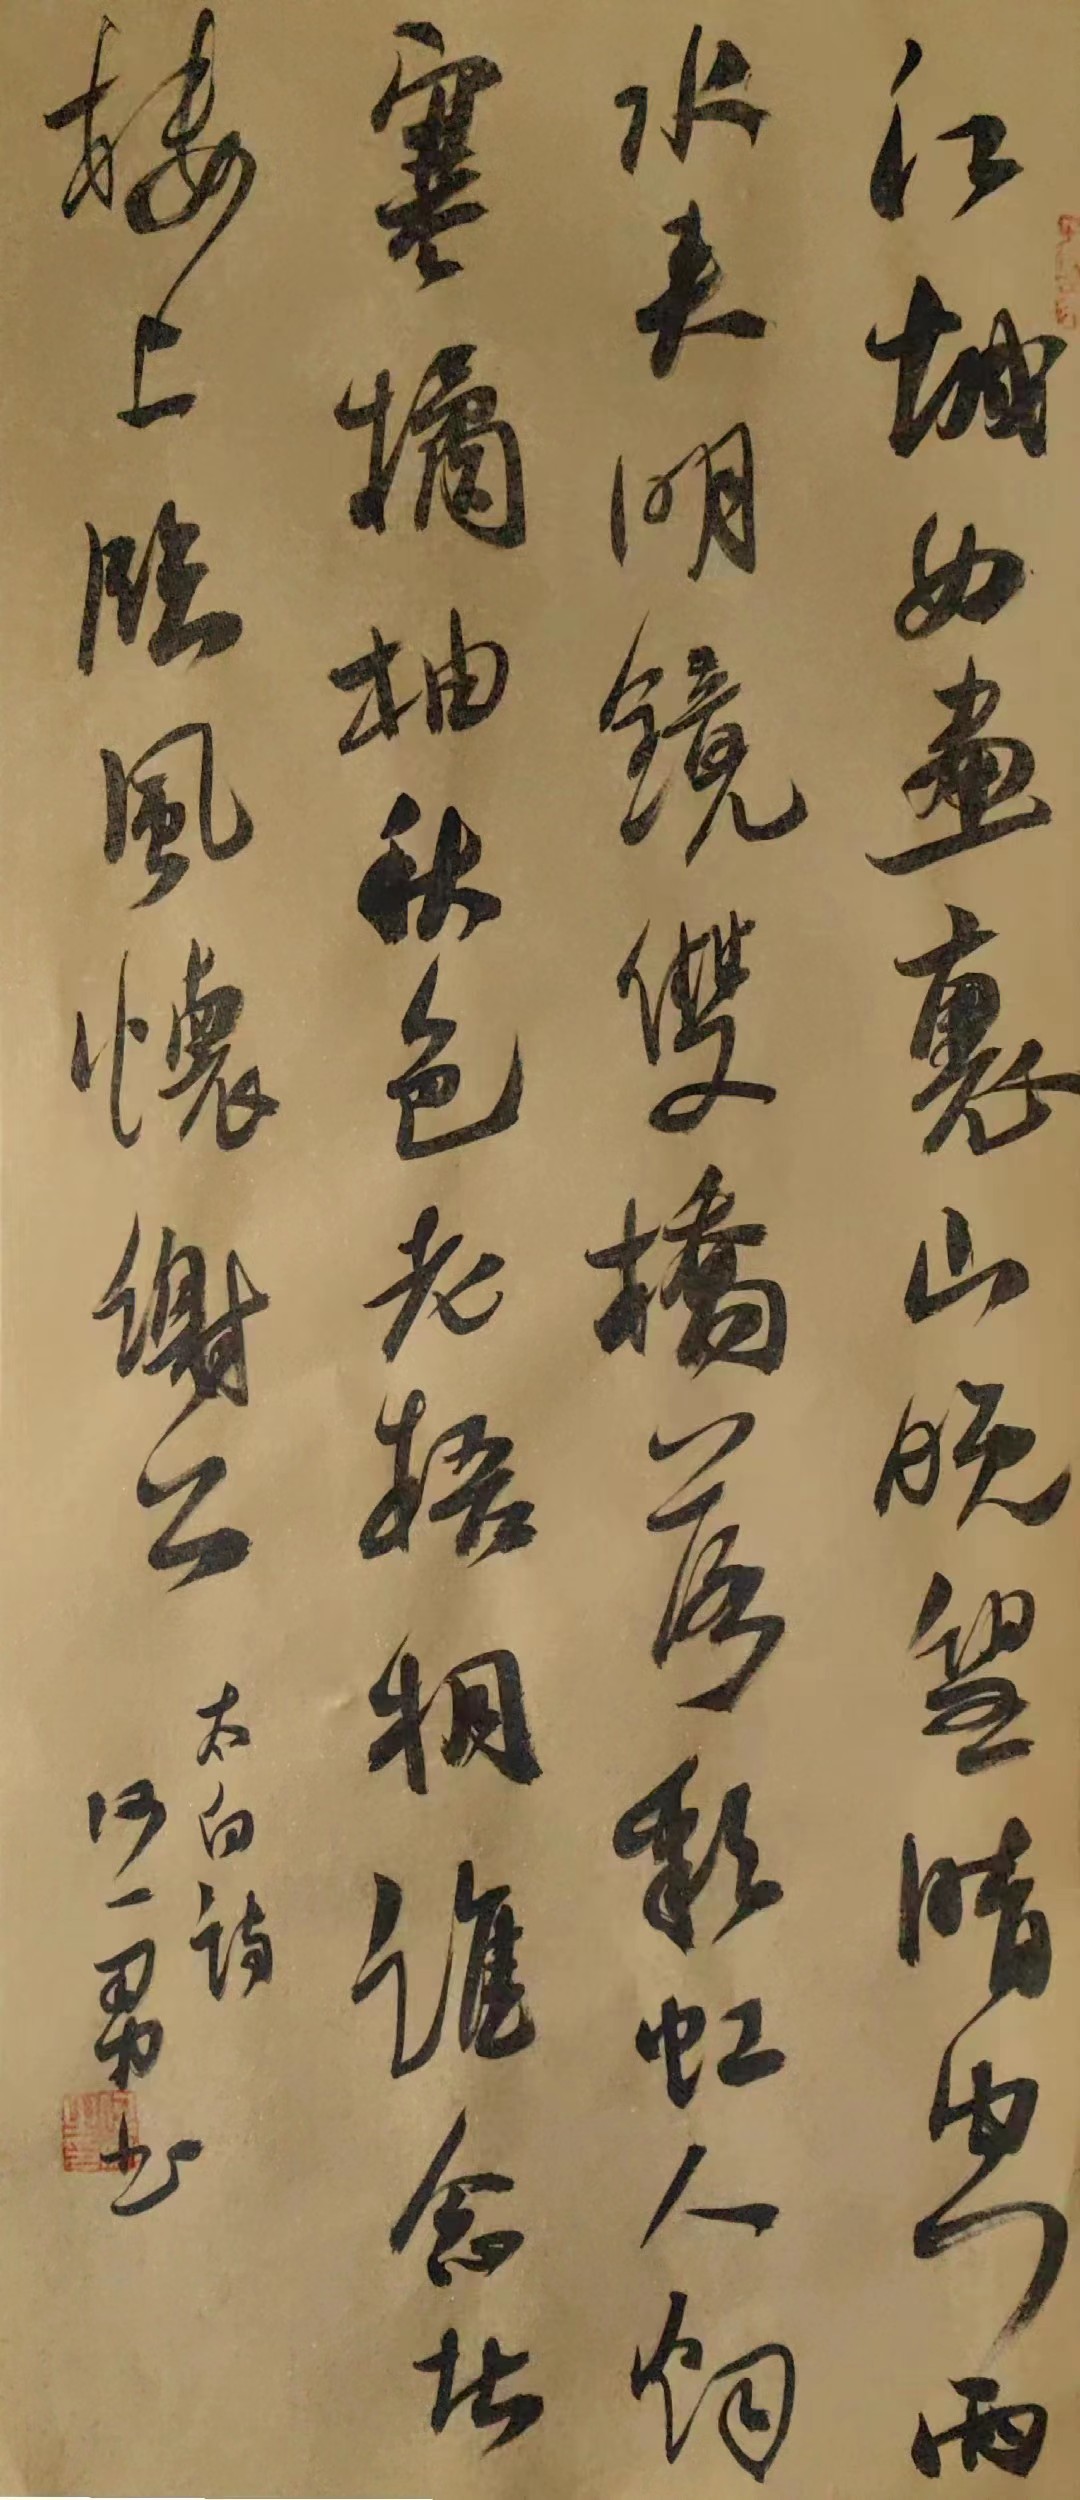 江城如畫裏山晚望晴空兩
水夾明鏡雙橋落彩虹人烟
寒橘柚秋色老梧桐誰念北
樓上臨風懷謝公
太白詩
一勇书